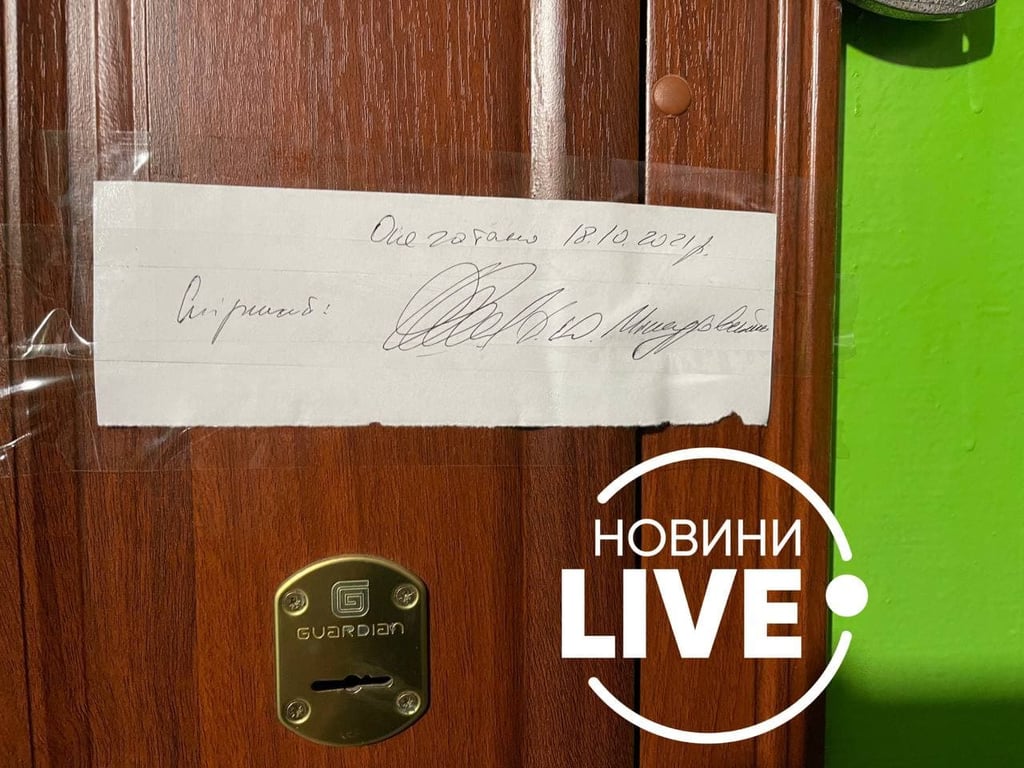 Опечатано 18.10.2021р.
Слідчий:
GUARDIAN
НОВИНИ
LIVE